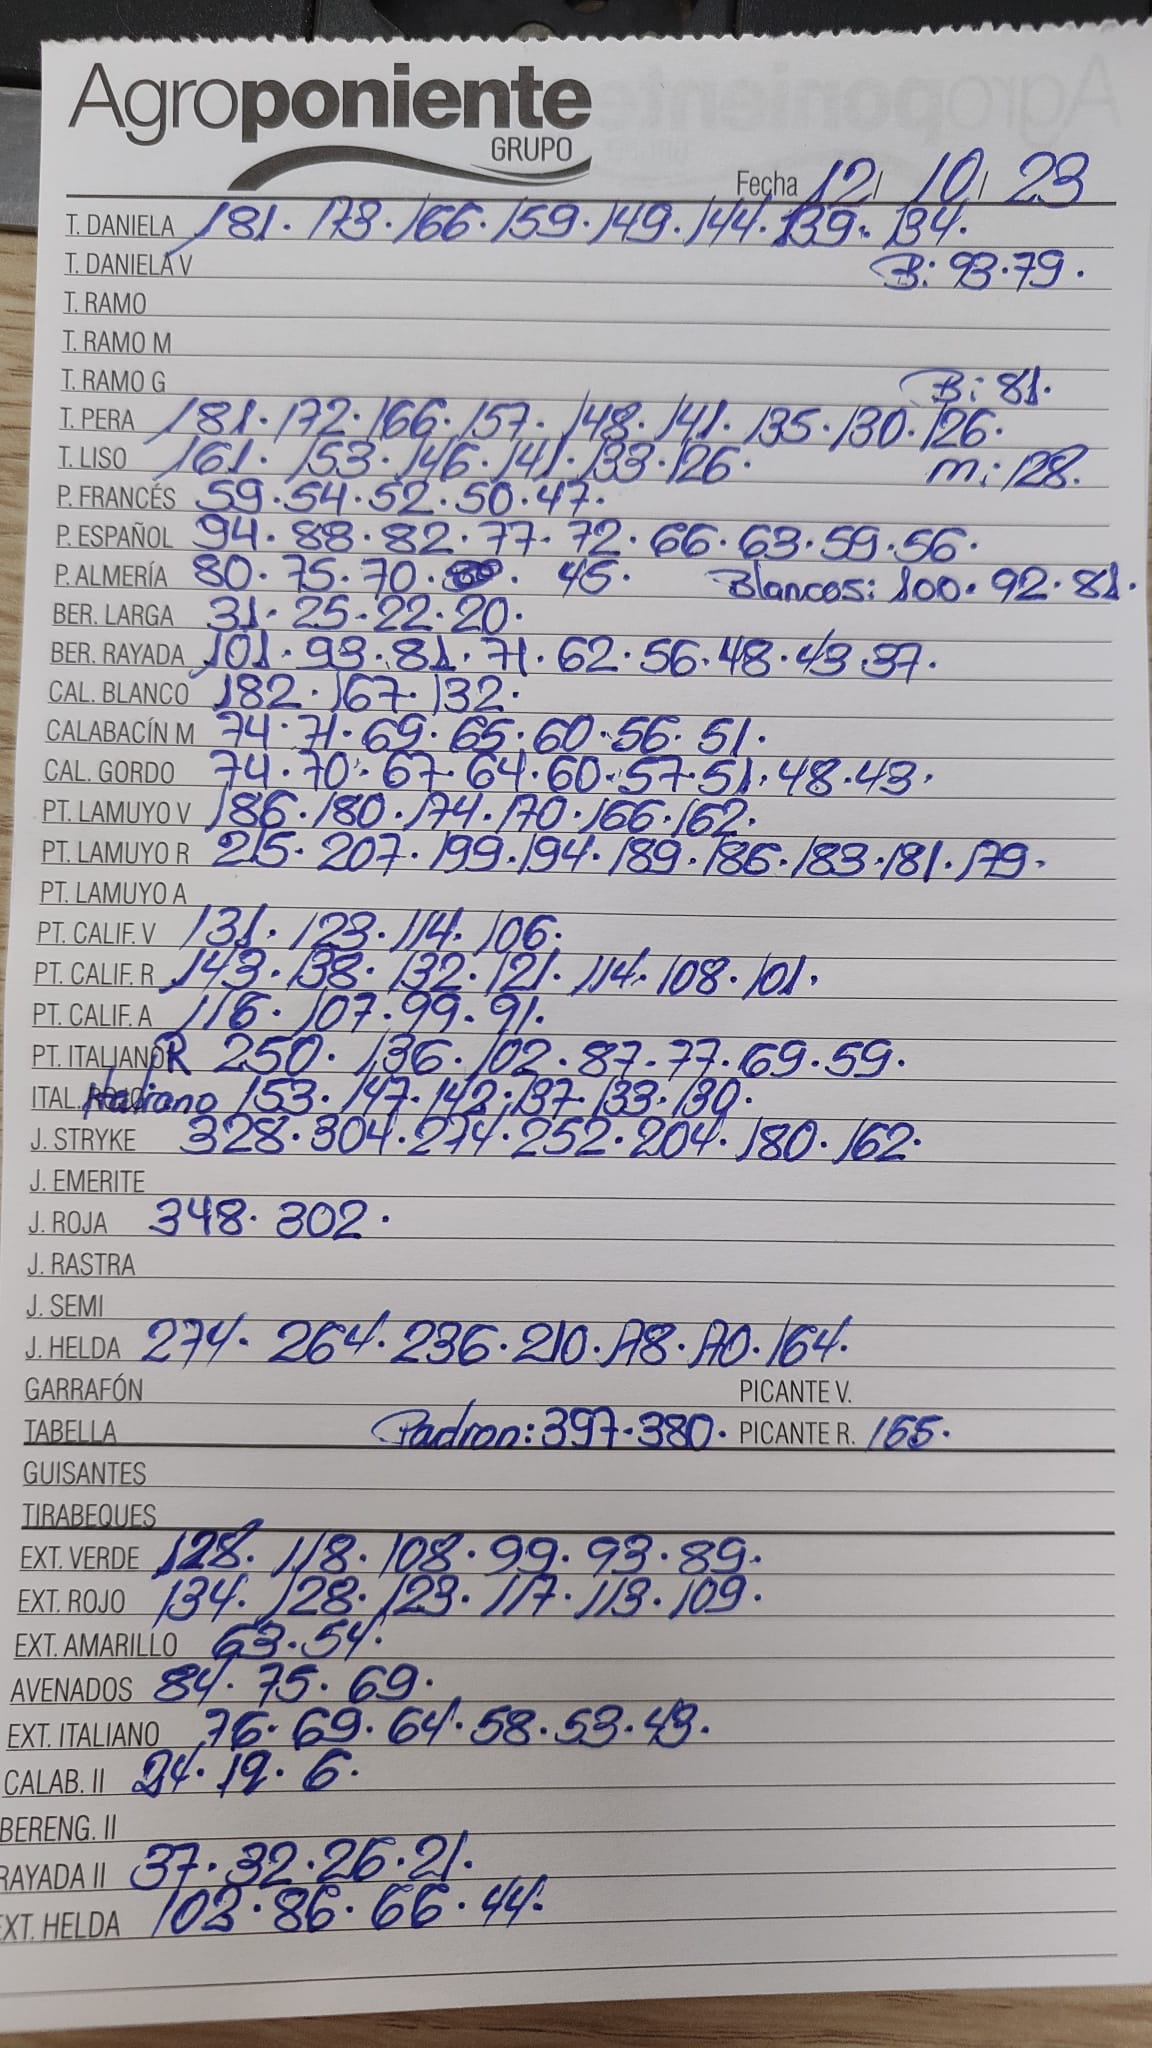 Agroponiente
GRUPO
Fecha 12/ 10/ 23
T. DANIELA 181. 173. 166. 159. 149. 144. 139. 134.
T. DANIELA V B: 93.79.
T. RAMO
T. RAMO M
T. RAMO G B: 81.
T. PERA 181. 172. 166. 157. 148. 141. 135. 130. 126.
T. LISO 161. 153. 146. 141. 133. 126. m: 128.
P. FRANCÉS 59.54.52.50.47.
P. ESPAÑOL 94. 88. 82. 77. 72. 66. 63. 59. 56.
P. ALMERÍA 80. 75. 70. 45. Blancos: 100. 92. 81.
BER. LARGA 31. 25. 22. 20.
BER. RAYADA 101. 93. 81. 71. 62. 56. 48. 43 37.
CAL. BLANCO 182. 167. 132.
CALABACÍN M 74. 71. 69. 65. 60. 56. 51.
CAL. GORDO 74. 70. 67. 64. 60. 57. 51. 48. 43.
PT. LAMUYO V 186. 180. 174. 170. 166. 162.
PT. LAMUYO R 215. 207. 199. 194. 189. 186. 183. 181. 179.
PT. LAMUYO A
PT. CALIF. V 131. 123. 114. 106.
PT. CALIF. R 143. 138. 132. 121. 114. 108. 101.
PT. CALIF. A 116. 107. 99. 91.
PT. ITALIANO R 250. 136. 102. 87. 77. 69. 59.
ITAL. Italiano 153. 147. 142. 137. 133. 130.
J. STRYKE 328. 304. 274. 252. 204. 180. 162.
J. EMERITE
J. ROJA 348. 302.
J. RASTRA
J. SEMI
J. HELDA 274. 264. 236. 210. 178. 170. 164.
GARRAFÓN PICANTE V.
TABELLA Padron: 397. 380. PICANTE R. 155.
GUISANTES
TIRABEQUES
EXT. VERDE 128. 118. 108. 99. 93. 89.
EXT. ROJO 134. 128. 123. 117. 113. 109.
EXT. AMARILLO 63. 54.
AVENADOS 84. 75. 69.
EXT. ITALIANO 76. 69. 64. 58. 53. 43.
CALAB. II 24. 19. 6.
BERENG. II
RAYADA II 37. 32. 26. 21.
EXT. HELDA 103. 86. 66. 44.